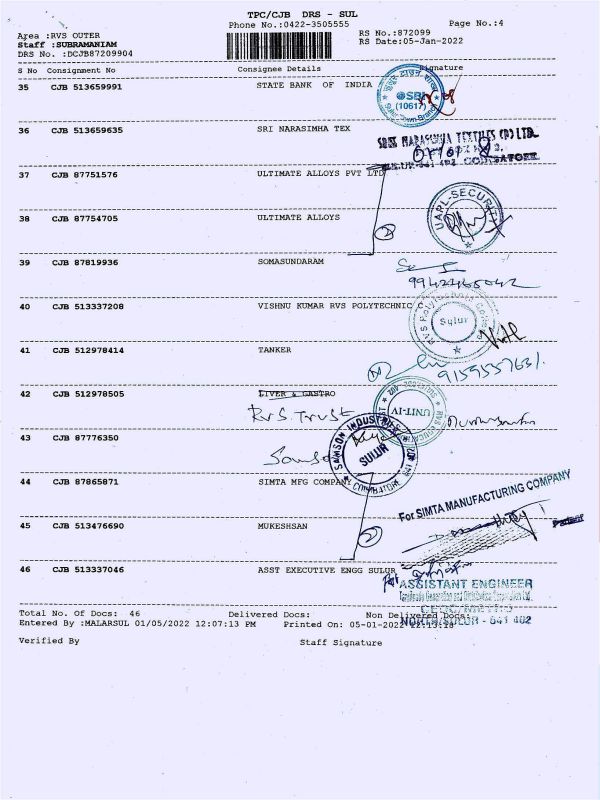 TPC/CJB DRS - SUL
Phone No.:0422-3505555
Page No.:4
Area :RVS OUTER
RS No.:872099
Staff :SUBRAMANIAM
RS Date:05-Jan-2022
DRS No. :DCJB87209904
S No Consignment No Consignee Details Signature
35 CJB 513659991 STATE BANK OF INDIA
SBI
(10617)
36 CJB 513659635 SRI NARASIMHA TEX
37 CJB 87751576 ULTIMATE ALLOYS PVT LTD
38 CJB 87754705 ULTIMATE ALLOYS
UAPL-SECURITY
2
39 CJB 87819936 SOMASUNDARAM
40 CJB 513337208 VISHNU KUMAR RVS POLYTECHNIC C
Sulur
41 CJB 512978414 TANKER
42 CJB 512978505 LIVER & GASTRO
RVS. Trust
UNIT-IV
43 CJB 87776350
SAMSON INDUSTRIES
SULUR
44 CJB 87865871 SIMTA MFG COMPANY
For SIMTA MANUFACTURING COMPANY
45 CJB 513476690 MUKESHSAN
2
46 CJB 513337046 ASST EXECUTIVE ENGG SULUR
ASSISTANT ENGINEER
NORTH/SULUR - 641 402
Total No. Of Docs: 46 Delivered Docs: Non Delivered Docs:
Entered By :MALARSUL 01/05/2022 12:07:13 PM Printed On: 05-01-2022
Verified By Staff Signature